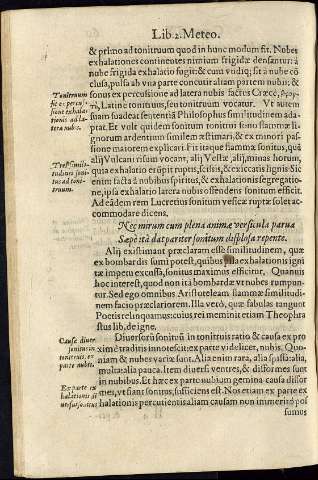 Lib.2. Meteo.
& primo ad tonitruum quod in hunc modum fit. Nubes
exhalationes continentes nimium frigidæ densantur: à
nube frigida exhalatio fugit: & cum vndiq; sit à nube cō
clusa, pulsa ab vna parte concutit aliam partem nubis: &
sonus ex percussione ad latera nubis factus Græcè,
Latinè tonitruus, seu tonitruum vocatur. Vt autem
suam suadeat sententiā Philosophus similitudinem ada
ptat. Et vult quidem sonitum tonitrui sono flammæ li-
gnorum ardentium similem æstimari: & ex minori pas-
sione maiorem explicari. Fit itaque flammæ sonitus, quā
alij Vulcani risum vocant, alij Vestæ, alij, minas horum,
quia exhalatio erūpit ruptis, scissis, & exiccatis lignis: Sic
enim facta à nubibus spiritus, & exhalationis segregatio-
ne, ipsa exhalatio latera nubis offendens sonitum efficit.
Ad eādem rem Lucretius sonitum vesicæ ruptæ solet ac
commodare dicens,
Nec mirum cum plena animæ versicula parua
Sæpe ità dat pariter sonitum displosa repente.
Alij existimant præclaram esse similitudinem, quæ
ex bombardis sumi potest, quibus illa exhalationis igni
tæ impetu excussa, sonitus maximus efficitur, Quanuis
hoc interest, quod non ità bombardæ vt nubes rumpun-
tur. Sed ego omnibus Aristoteleam flammæ similitudi-
nem facio præclariorem. Illa verò, quæ fabulas tangunt
Poetis relinquamus: cuius rei meminit etiam Theophra
stus lib, de igne.
Diuersorū sonitū in tonitruis ratio & causa ex pro
ximè traditis innotescit ex parte videlicet, nubis. Quo-
niam & nubes variæ sunt. Alia enim rara, alia spissa: alia,
multa: alia pauca. Item diuersi ventres, & difformes sunt
in nubibus. Et hæc ex parte nubium gemina causa diffor
mes, vt fiant sonitus, sufficiens est. Nos etiam ex parte ex
halationis percutientis aliam causam non immeritò pos
sumus
Tonitruum
fit ex percus-
sione exhala-
tionis ad la-
tera nubis.
Tres simili-
tudines soni-
tus ad toni-
truum.
Cause diuer
sonitus in
tonitruis, ex
parte nubis.
Ex parte ex
halationis di
uersus sonitus